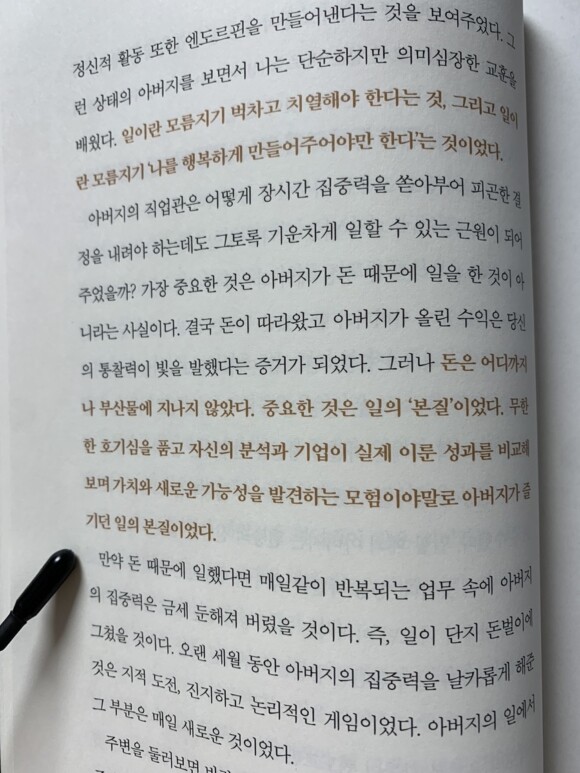 정신적 활동 또한 엔도르핀을 만들어낸다는 것을 보여주었다. 그
런 상태의 아버지를 보면서 나는 단순하지만 의미심장한 교훈을
배웠다. 일이란 모름지기 벅차고 치열해야 한다는 것, 그리고 일이
란 모름지기 '나를 행복하게 만들어주어야만 한다'는 것이었다.
아버지의 직업관은 어떻게 장시간 집중력을 쏟아부어 피곤한 결
정을 내려야 하는데도 그토록 기운차게 일할 수 있는 근원이 되어
주었을까? 가장 중요한 것은 아버지가 돈 때문에 일을 한 것이 아
니라는 사실이다. 결국 돈이 따라왔고 아버지가 올린 수익은 당신
의 통찰력이 빛을 발했다는 증거가 되었다. 그러나 돈은 어디까지
나 부산물에 지나지 않았다. 중요한 것은 일의 '본질'이었다. 무한
한 호기심을 품고 자신의 분석과 기업이 실제 이룬 성과를 비교해
보며 가치와 새로운 가능성을 발견하는 모험이야말로 아버지가 즐
기던 일의 본질이었다.
만약 돈 때문에 일했다면 매일같이 반복되는 업무 속에 아버지
의 집중력은 금세 둔해져 버렸을 것이다. 즉, 일이 단지 돈벌이에
그쳤을 것이다. 오랜 세월 동안 아버지의 집중력을 날카롭게 해준
것은 지적 도전, 진지하고 논리적인 게임이었다. 아버지의 일에서
그 부분은 매일 새로운 것이었다.
주변을 둘러보면